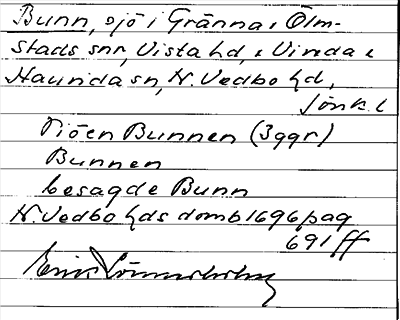 Bunn, sjö i Gränna, Ölm-
stads snr, Vista hd, i Vireda &
Haurida sn, N. Vedbo hd,
Jönk. l
Siöen Bunnen (3 ggr)
Bunnen
besagde Bunn
N. Vedbo hds domb 1696 pag
691 ff